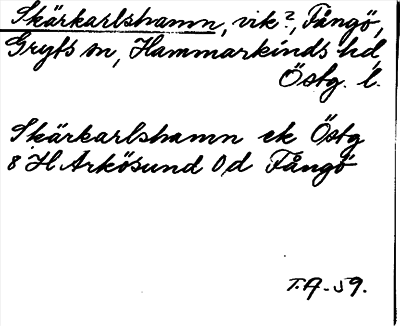 Skärkarlshamn, vik?, Fångö,
Gryts sn, Hammarkinds hd,
Östg. l.
Skärkarlshamn ek Östg
8 H Arkösund 0,d Fångö
T.A-59.